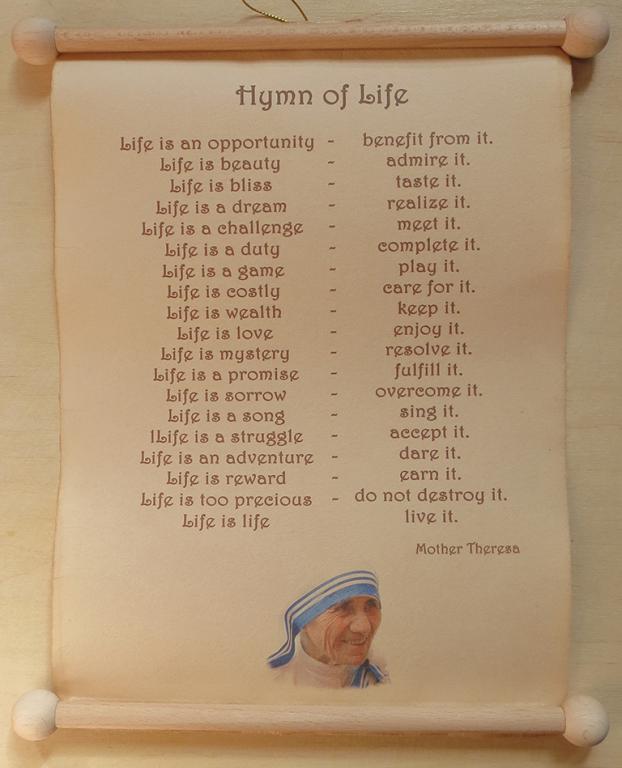 Hymn of Life
Life is an opportunity - benefit from it.
Life is beauty - admire it.
Life is bliss - taste it.
Life is a dream - realize it.
Life is a challenge - meet it.
Life is a duty - complete it.
Life is a game - play it.
Life is costly - care for it.
Life is wealth - keep it.
Life is love - enjoy it.
Life is mystery - resolve it.
Life is a promise - fulfill it.
Life is sorrow - overcome it.
Life is a song - sing it.
lLife is a struggle - accept it.
Life is an adventure - dare it.
Life is reward - earn it.
Life is too precious - do not destroy it.
Life is life live it.
Mother Theresa